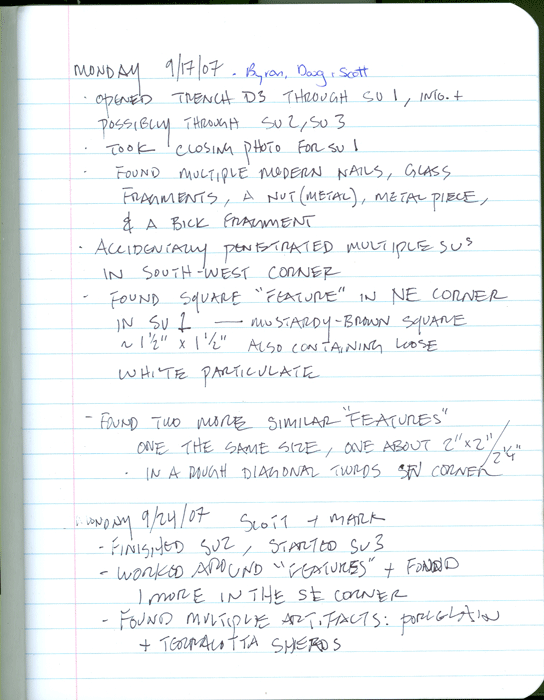 MONDAY 9/17/07 . Byron, Doug, Scott
· OPENED TRENCH D3 THROUGH SU 1, INTO +
POSSIBLY THROUGH SU 2, SU 3
· TOOK CLOSING PHOTO FOR SU 1
· FOUND MULTIPLE MODERN NAILS, GLASS
FRAGMENTS, A NUT (METAL), METAL PIECE,
& A BICK FRAGMENT
· ACCIDENTALLY PENETRATED MULTIPLE SUs
IN SOUTH-WEST CORNER
· FOUND SQUARE "FEATURE" IN NE CORNER
IN SU 1 — MUSTARDY-BROWN SQUARE
~ 1 1/2" x 1 1/2" ALSO CONTAINING LOOSE
WHITE PARTICULATE
- FOUND TWO MORE SIMILAR "FEATURES"
ONE THE SAME SIZE, ONE ABOUT 2" x 2" / 2 1/4"
· IN A ROUGH DIAGONAL TWRDS CORNER
MONDAY 9/24/07 SCOTT + MARK
- FINISHED SU2, STARTED SU3
- WORKED AROUND "FEATURES" + FOUND
1 MORE IN THE SE CORNER
- FOUND MULTIPLE ARTIFACTS: PORCELAIN
+ TERRACOTTA SHERDS